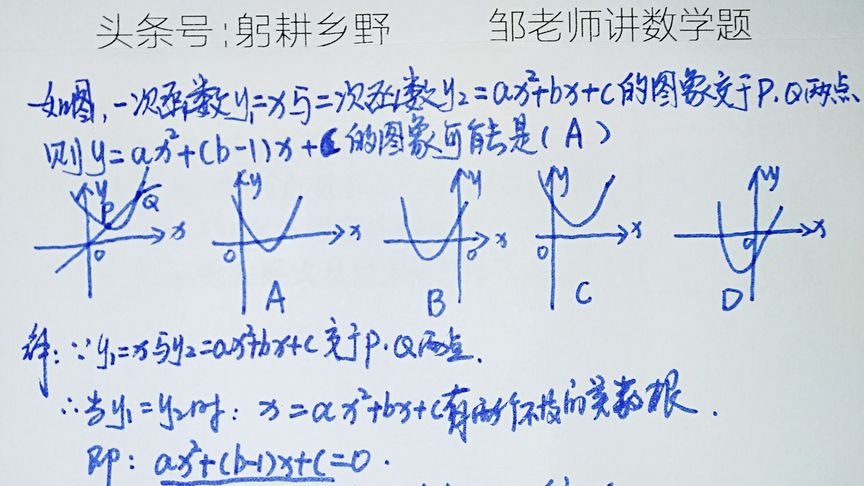 头条号:躬耕乡野 邹老师讲数学题
如图,一次函数y₁=x与二次函数y₂=ax²+bx+c的图象交于P.Q两点、
则y=ax²+(b-1)x+c的图象可能是(A)
y P Q x 0
y x 0 A
y x 0 B
y x 0 C
y x 0 D
解:∵y₁=x与y₂=ax²+bx+c交于P.Q两点.
∴当y₁=y₂时: x=ax²+bx+c有两个不等的实数根.
即: ax²+(b-1)x+c=0.